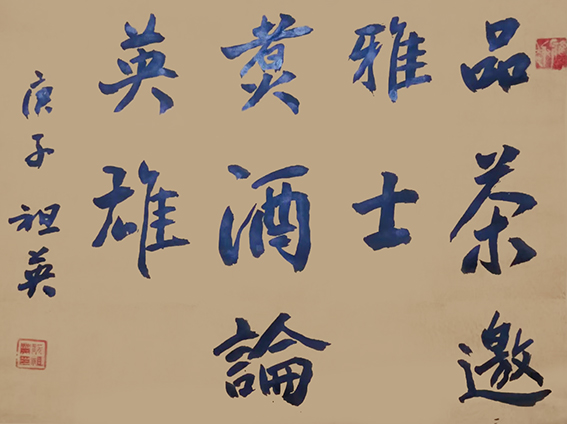 品茶邀
雅士
煑酒論
英雄
庚子祖英